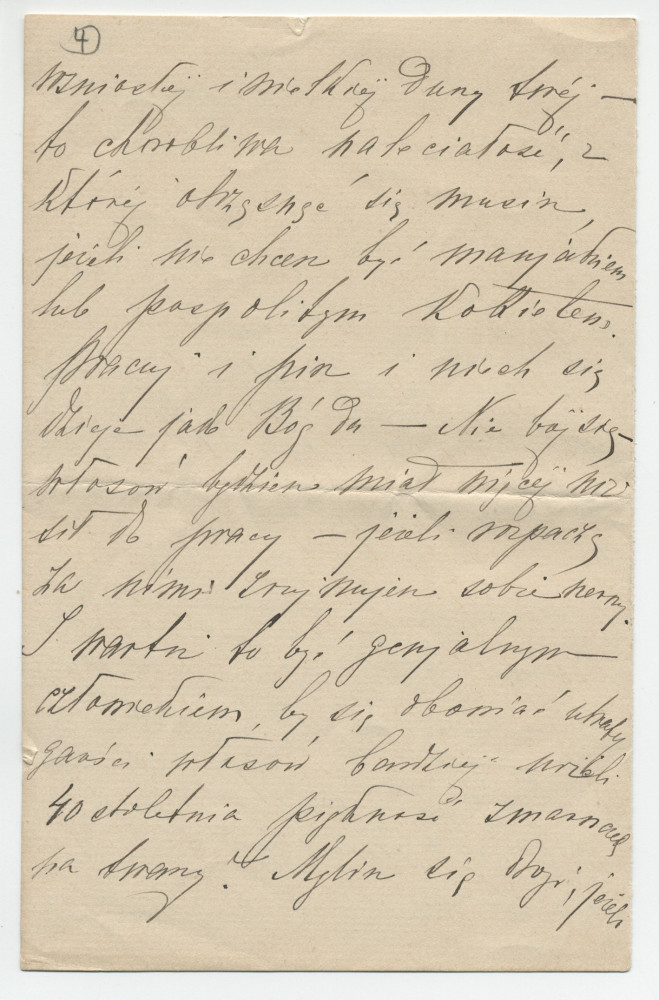 4
wzniosłéj i wielkiéj duszy twéj —
to chorobliwa naleciałość, z
któréj otrząsnąć się musisz,
jeżeli nie chcesz być manjakiem
lub pospolitym kobietem.
Pracuj i pisz i niech się
dzieje jak Bóg da — Nie bój się —
włosów będziesz miał więcéj niż
sił do pracy — jeżeli rozpaczą
za nimi zrujnujesz sobie nerwy.
I warto to być genjalnym
człowiekiem, by się obawiać utraty
garści włosów bardziéj niżeli
40 stoletnia piękność zmarszczek
na twarzy! Mylisz się drogi, jeżeli